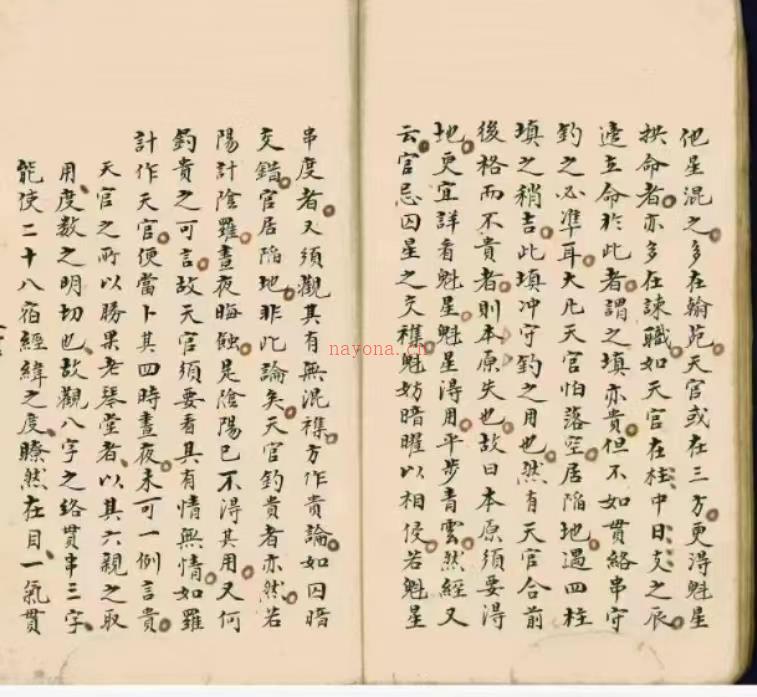 他星混之多在翰苑天官或在三方更得魁星
拱命者亦多在諫職如天官在柱中日支之辰
造立命於此者謂之填亦貴但不如貫絡串守
釣之必準耳大凡天官怕落空居陷地遇四柱
填之稍吉此填冲守釣之用也然有天官合前
後格而不貴者則本原失也故曰本原須要得
地更宜詳看魁星魁星得用平步青雲然經又
云官忌囚星之交襍魁妨暗曜以相侵若魁星
串度者又須觀其有無混襍方作貴論如囚暗
交錯官居陷地非此論矣天官釣貴者亦然若
陽計陰羅晝夜晦蝕是陰陽已不得其用又何
釣貴之可言故天官須要看其有情無情如羅
計作天官便當卜其四時晝夜未可一例言貴
天官之所以勝果老琴堂者以其六親之取
用度數之明切也故觀八字之絡貫串三字
能使二十八宿經緯之度瞭然在目一氣貫
nayona.cn